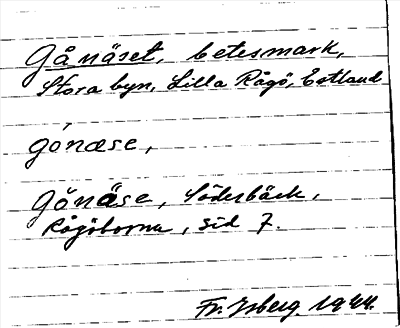 Gånäset, betesmark,
Stora byn, Lilla Rågö, Estland
gónæse,
Gånäse, Söderbäck,
Rågöborna, sid 7.
Fr. Isberg. 1944.